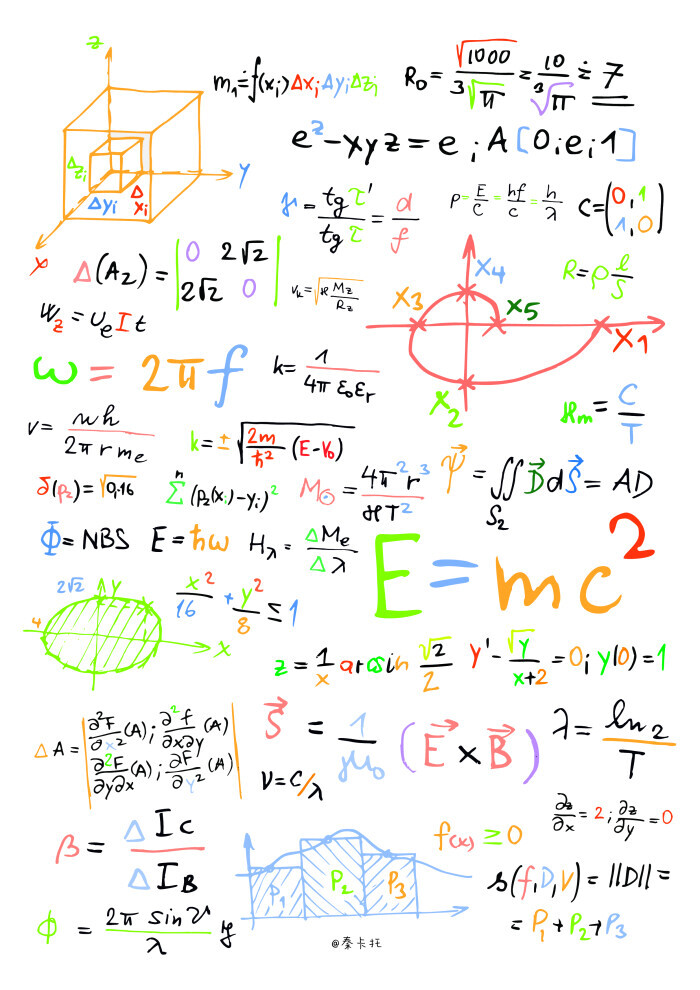 z
m₁ ≐ f(xᵢ)Δxᵢ Δyᵢ Δzᵢ
R₀ = √1000 / 3√π ≐ 10 / ³√π ≐ 7
Δzᵢ
Δyᵢ
Δxᵢ
y
x
e^z - xyz = e ; A[0;e;1]
γ' = tg τ' / tg τ = d / f
P = E/C = hf/c = h/λ
C = (0,1 1,0)
Δ(A₂) = |0 2√2 2√2 0|
vₖ = √(ϰ M_z / R_z)
X₄
X₃
X₅
X₁
X₂
R = ρ l/S
W_z = U_e I t
ω = 2πf
k = 1 / 4π ε₀ε_r
ϰ_m = C / T
v = nh / 2π r m_e
k = ± √(2m/ħ² (E-V₀))
δ(p₂) = √0,16
n
Σ(p₂(xᵢ)-yᵢ)²
M_⊙ = 4π² r³ / ϰT²
ψ⃗ = ∬ D⃗ dS⃗ = AD
S₂
Φ = NBS
E = ħω
H_λ = ΔM_e / Δλ
E = mc²
2√2
y
4
x
x²/16 + y²/8 ≤ 1
z = 1/x arcsin √2/2
y' - √y / x+2 = 0; y(0) = 1
ΔA = |∂²F/∂x² (A); ∂²f/∂x∂y (A)
∂²F/∂y∂x (A); ∂F/∂y² (A)|
S⃗ = 1/μ₀ (E⃗ × B⃗)
λ = ln 2 / T
ν = c/λ
∂z/∂x = 2; ∂z/∂y = 0
β = ΔIc / ΔI_B
P₁
P₂
P₃
f(x) ≥ 0
s(f,D,V) = ||D|| =
= P₁ + P₂ + P₃
ϕ = 2π sin ϑ / λ y
@秦卡托